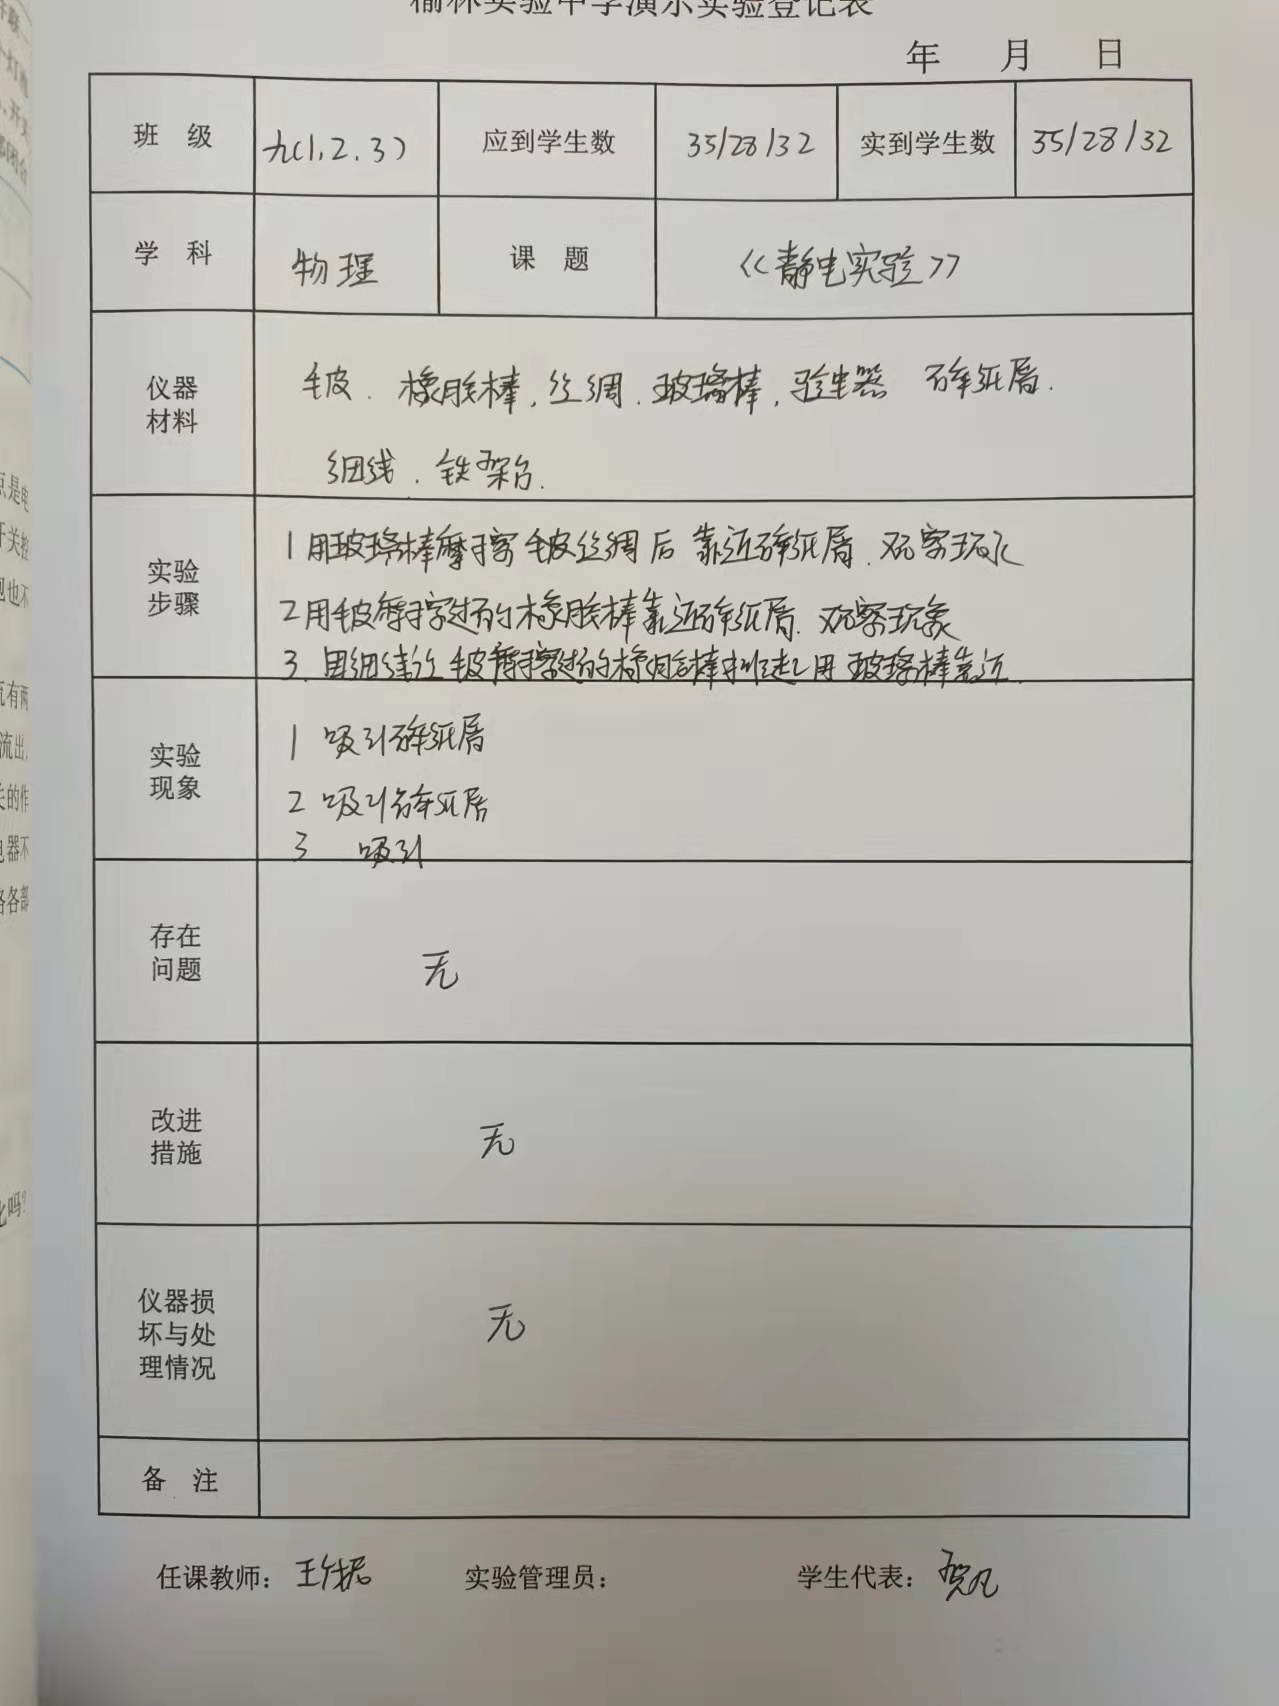 榆林实验中学演示实验登记表
年 月 日
班 级 九(1.2.3) 应到学生数 35/28/32 实到学生数 35/28/32
学 科 物理 课 题 《静电实验》
仪器
材料
毛皮. 橡胶棒, 丝绸. 玻璃棒, 验电器 碎纸屑.
细线. 铁架台.
实验
步骤
1 用玻璃棒摩擦毛皮丝绸后 靠近碎纸屑. 观察现
2 用毛皮摩擦过的橡胶棒靠近碎纸屑. 观察现象
3. 用细线 毛皮摩擦过的橡胶棒 用玻璃棒靠近.
实验
现象
1 吸引碎纸屑
2 吸引碎纸屑
3 吸引
存在
问题
无
改进
措施
无
仪器损
坏与处
理情况
无
备 注
任课教师: 王 实验管理员: 学生代表: 贺凡
点是电
开关控
有两
流出.
关的作
电器不
路各部
化吗?